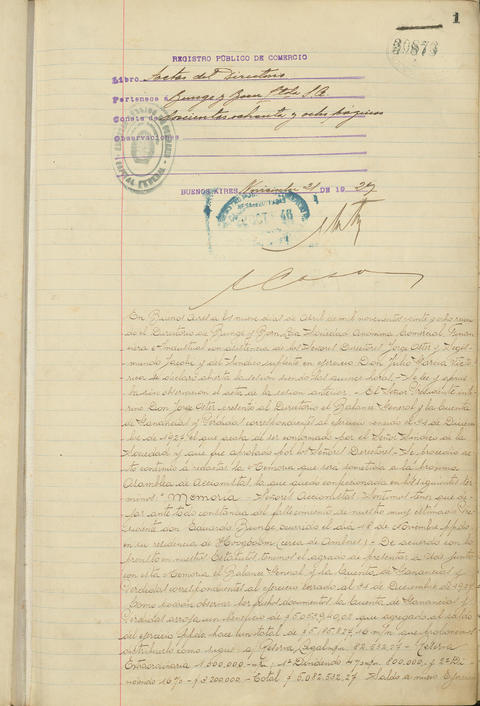 1
39873
REGISTRO PÚBLICO DE COMERCIO
Libro Actas del Directorio
Pertenece a Bunge y Born Ltda S.A.
Consta de doscientas ochenta y ocho páginas
Observaciones
BUENOS AIRES, Noviembre 21 DE 1927
En Buenos Aires a los nueve días de Abril de mil novecientos veinte y ocho reuni-
do el Directorio de Bunge y Born Ltda Sociedad Anónima Comercial, Finan-
ciera e Industrial con asistencia de los Señores Directores Jorge Oster y Segis-
mundo Jacobi y del Síndico suplente en ejercicio Don Julio García
se declaró abierta la sesión siendo las quince horas. - Se lee y aprue-
ba sin observación el acta de la sesión anterior. - El Señor Presidente inte-
rino Don Jorge Oster presenta al Directorio el Balance General y la Cuenta
de Ganancias y Pérdidas correspondiente al ejercicio vencido el 31 de Diciem-
bre de 1927 el que acaba de ser conformado por el Señor Síndico de la
Sociedad y que fue aprobado por los Señores Directores. - Se procedió
acto continuo a redactar la Memoria que será sometida a la próxima
Asamblea de Accionistas la que quedó confeccionada en los siguientes tér-
minos: "Memoria - Señores Accionistas: Sentimos tener que de-
jar ante todo constancia del fallecimiento de nuestro muy estimado Pre-
sidente don Eduardo Bunge ocurrido el día 18 de Noviembre ppdo
en su residencia de Hoogboom (cerca de Amberes). - De acuerdo con lo
prescrito en nuestros Estatutos tenemos el agrado de presentar a Uds. junto
con esta Memoria el Balance General y la Cuenta de Ganancias y
Pérdidas correspondientes al ejercicio cerrado al 31 de Diciembre de 1927
Como podrán observar por dichos documentos la Cuenta de Ganancias y
Pérdidas arroja un beneficio de $ que agregado al saldo
del ejercicio ppdo. hace un total de $ 5.185.827,16 m/n que proponemos
distribuirlo como sigue: a/ Reserva Legal m/n 82.532,27 - Reserva
Extraordinaria 1.000.000.- 1er Dividendo 4% m/n 800.000,- 2º Di-
videndo 16% - $ 3.200.000 - Total $ 5.082.532,27 Saldo a nuevo Ejercicio